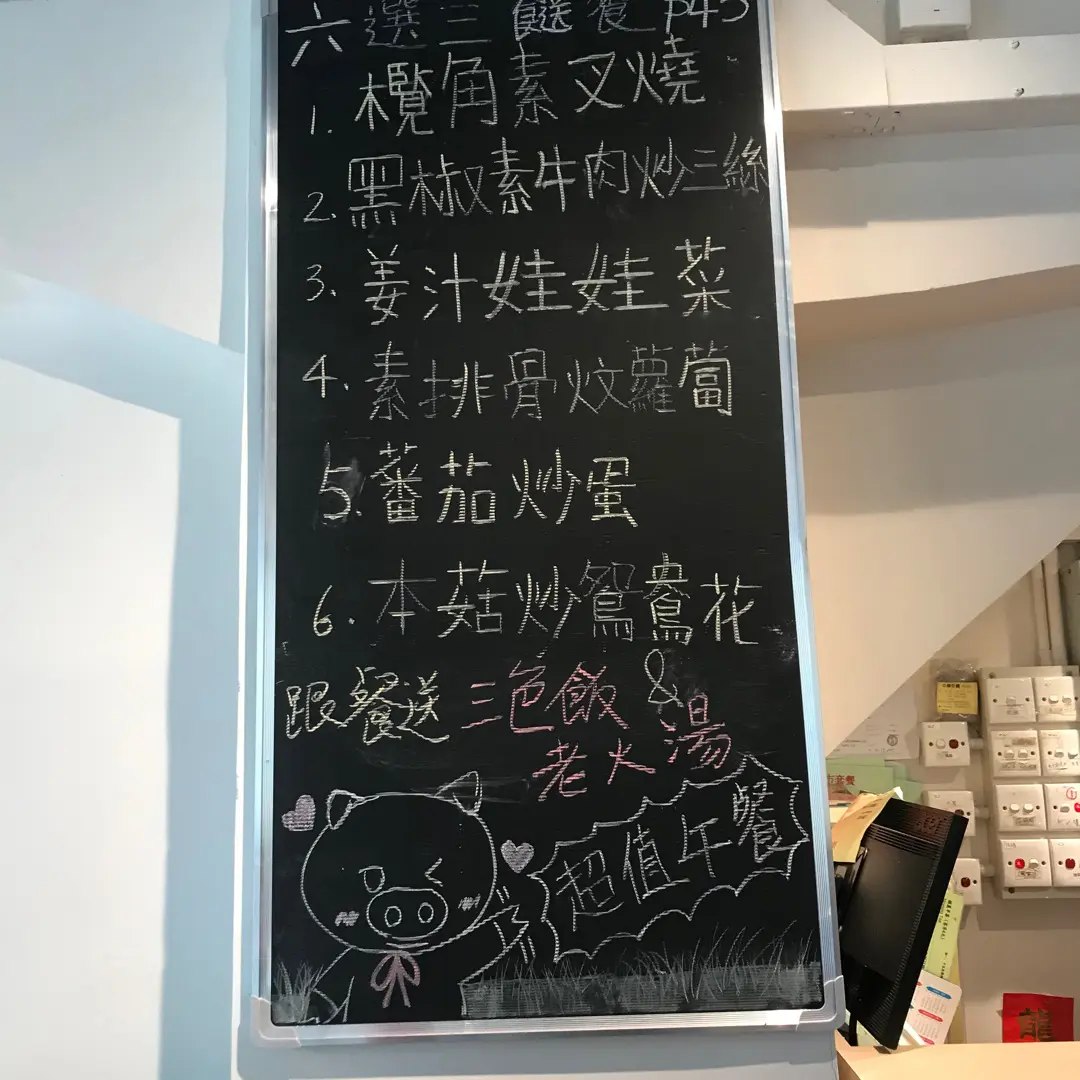 六選三餸餐 P45
1. 欖角素叉燒
2. 黑椒素牛肉炒三絲
3. 姜汁娃娃菜
4. 素排骨炆蘿蔔
5. 蕃茄炒蛋
6. 本菇炒鴛鴦花
跟餐送三色飯 &
老火湯
超值午餐
市套餐
龍